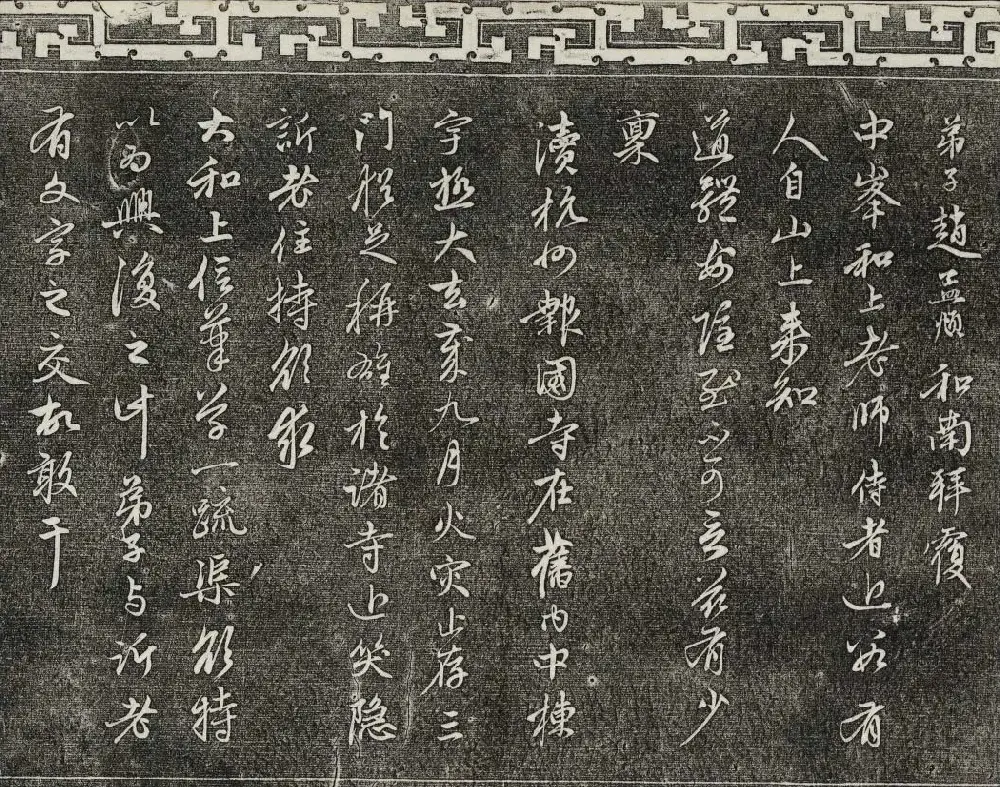 弟子趙孟頫和南拜覆
中峯和上老師侍者近有
人自山上来知
道體安隱至不可言兹有少
稟
瀆杭州報國寺在舊内中棟
宇極大去歲九月火灾止存三
門猶足稱雄於諸寺近笑隐
訢老住持欲求
大和上信筆寫一疏渠欲持
以為興復之計弟子与訢老
有文字之交故敢干